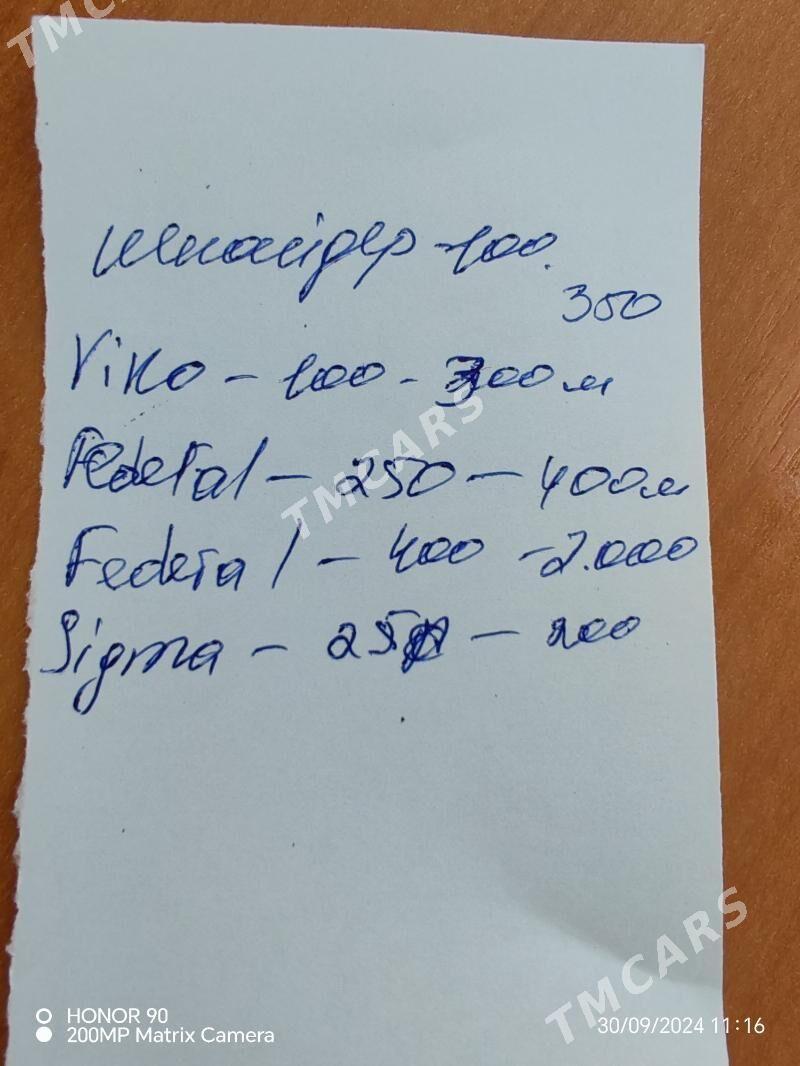 TMCARS
Шнайдер - 100.
350
Viko - 100 - 300м
Federal - 250 - 400м
TMCARS
Federal - 400 - 2.000
Sigma - 250 - 200
TMCARS
HONOR 90
200MP Matrix Camera
30/09/2024 11:16